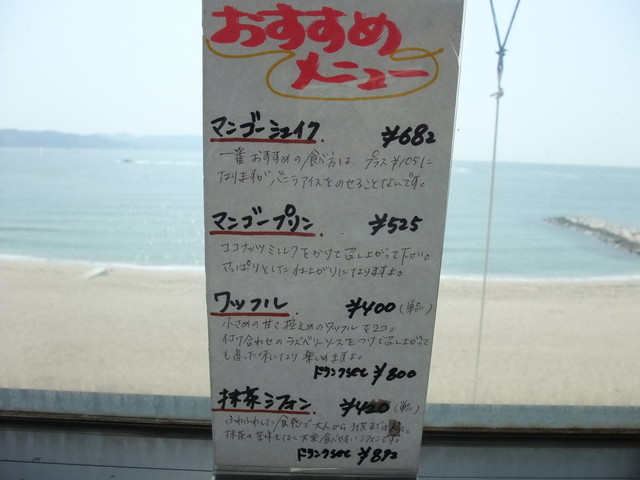 おすすめ
メニュー
マンゴーシェイク ¥682
一番おすすめの食べ方は プラス¥105に
なりますがバニラアイスをのせることなんです。
マンゴープリン ¥525
ココナッツミルクをかけて召し上がって下さい。
さっぱりとした仕上がりになりますよ。
ワッフル ¥400(単品)
小さめの甘さ控えめのワッフルを2つ。
付け合わせのラズベリーソースをつけて召し上がって
も違った味になり楽しめますよ。
ドリンクset ¥800
抹茶シフォン ¥420(単品)
ふわふわした食感で大人から子供まで
抹茶の苦味もなく大変食べやすいシフォンです。
ドリンクset ¥892